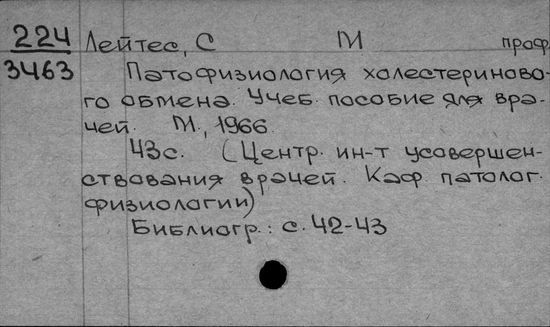 224 Лейтес, С М проф.
3463 Патофизиология холестериново-
го обмена. Учеб. пособие для вра-
чей. М., 1966.
43с. (Центр. ин-т усовершен-
ствования врачей. Каф. патолог.
физиологии)
Библиогр.: с. 42-43